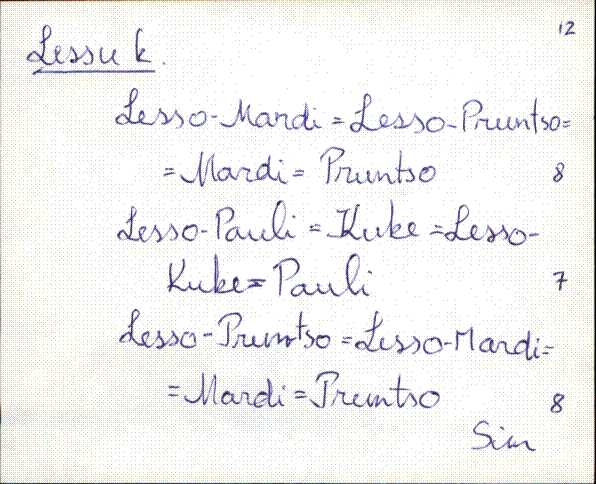 12
Lessu k.
Lesso-Mardi = Lesso-Pruntso =
= Mardi = Pruntso 8
Lesso-Pauli = Kuke = Lesso-
Kuke = Pauli 7
Lesso-Pruntso = Lesso-Mardi =
= Mardi = Pruntso 8
Sim